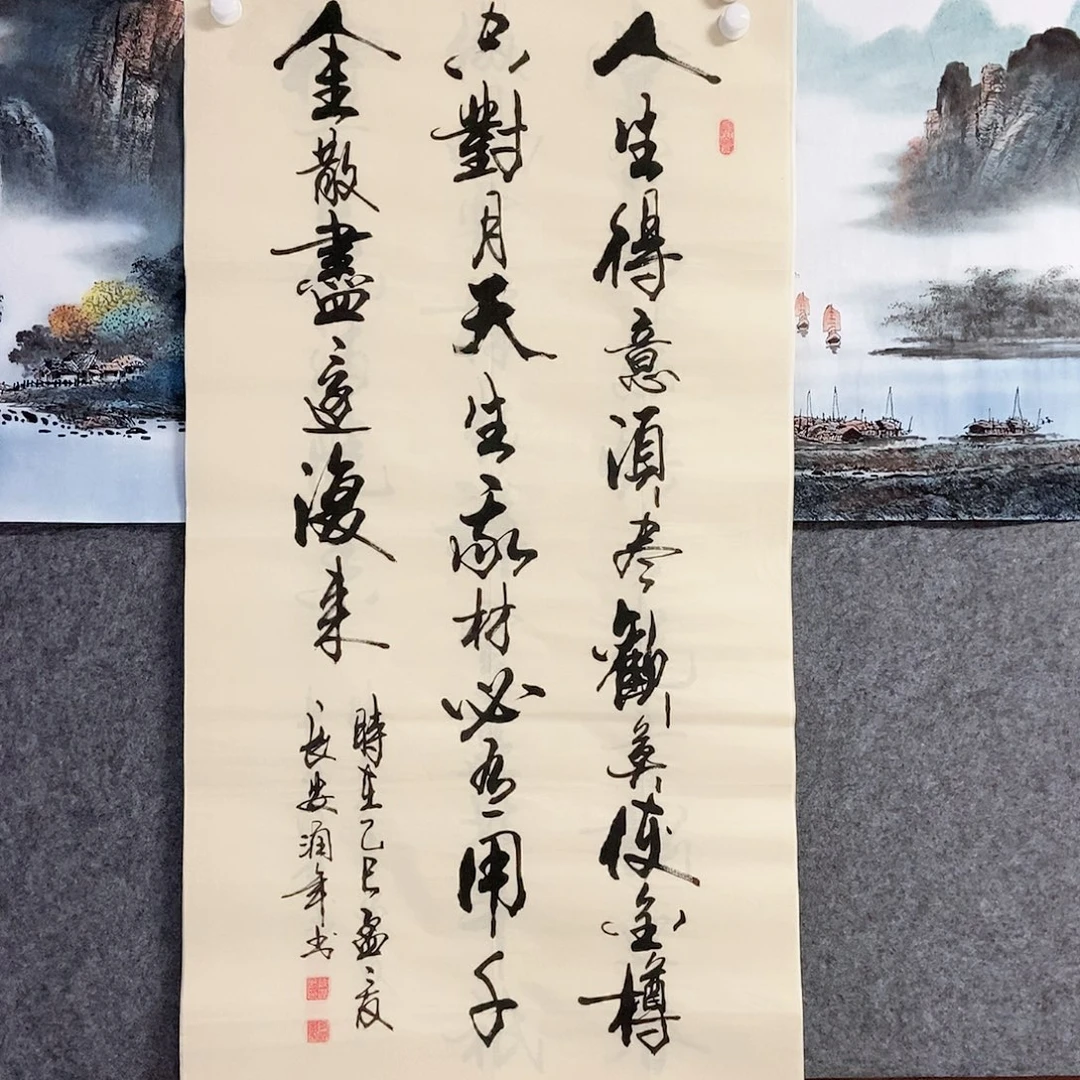 人生得意須尽歡莫使金樽
空對月天生我材必有用千
金散盡還復来
時在乙巳孟夏
長安润年书